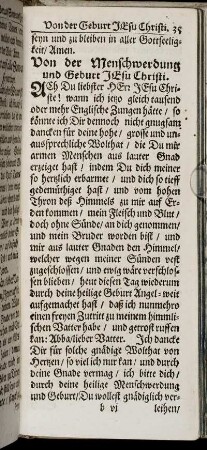 Von der Geburt JEsu Christi. 35
seyn und zu bleiben in aller Gottseelig-
keit/ Amen.
Von der Menschwerdung
und Geburt JEsu Christi.
ACh Du liebster HErr JEsu Chri-
ste! wann ich jetzo gleich tausend
oder mehr Englische Zungen hätte / so
könnte ich Dir dennoch nicht gnugsam
dancken für deine hohe / grosse und un-
aussprechliche Wolthat / die Du mir
armen Menschen aus lauter Gnad
erzeiget hast / indem Du dich meiner
so hertzlich erbarmet / und dich so tieff
gedemüthiget hast / und vom hohen
Thron deß Himmels zu mir auf Er-
den kommen / mein Fleisch und Blut /
doch ohne Sünde/ an dich genommen/
und mein Bruder worden bist / und
mir aus lauter Gnaden den Himmel/
welcher wegen meiner Sünden vest
zugeschlossen / und ewig wäre verschlos-
sen blieben/ heut diesen Tag wiederum
durch deine heilige Geburt Angel-weit
aufgemachet hast / daß ich nunmehro
einen freyen Zutritt zu meinem himmli-
schen Vatter habe / und getrost ruffen
kan: Abba/lieber Vatter. Ich dancke
Dir für solche gnädige Wolthat von
Hertzen / so viel ich nur kan / und durch
deine Gnade vermag / ich bitte / dich /
durch deine heilige Menschwerdung
und Geburt/ Du wollest gnädiglich ver-
b vj leihen/